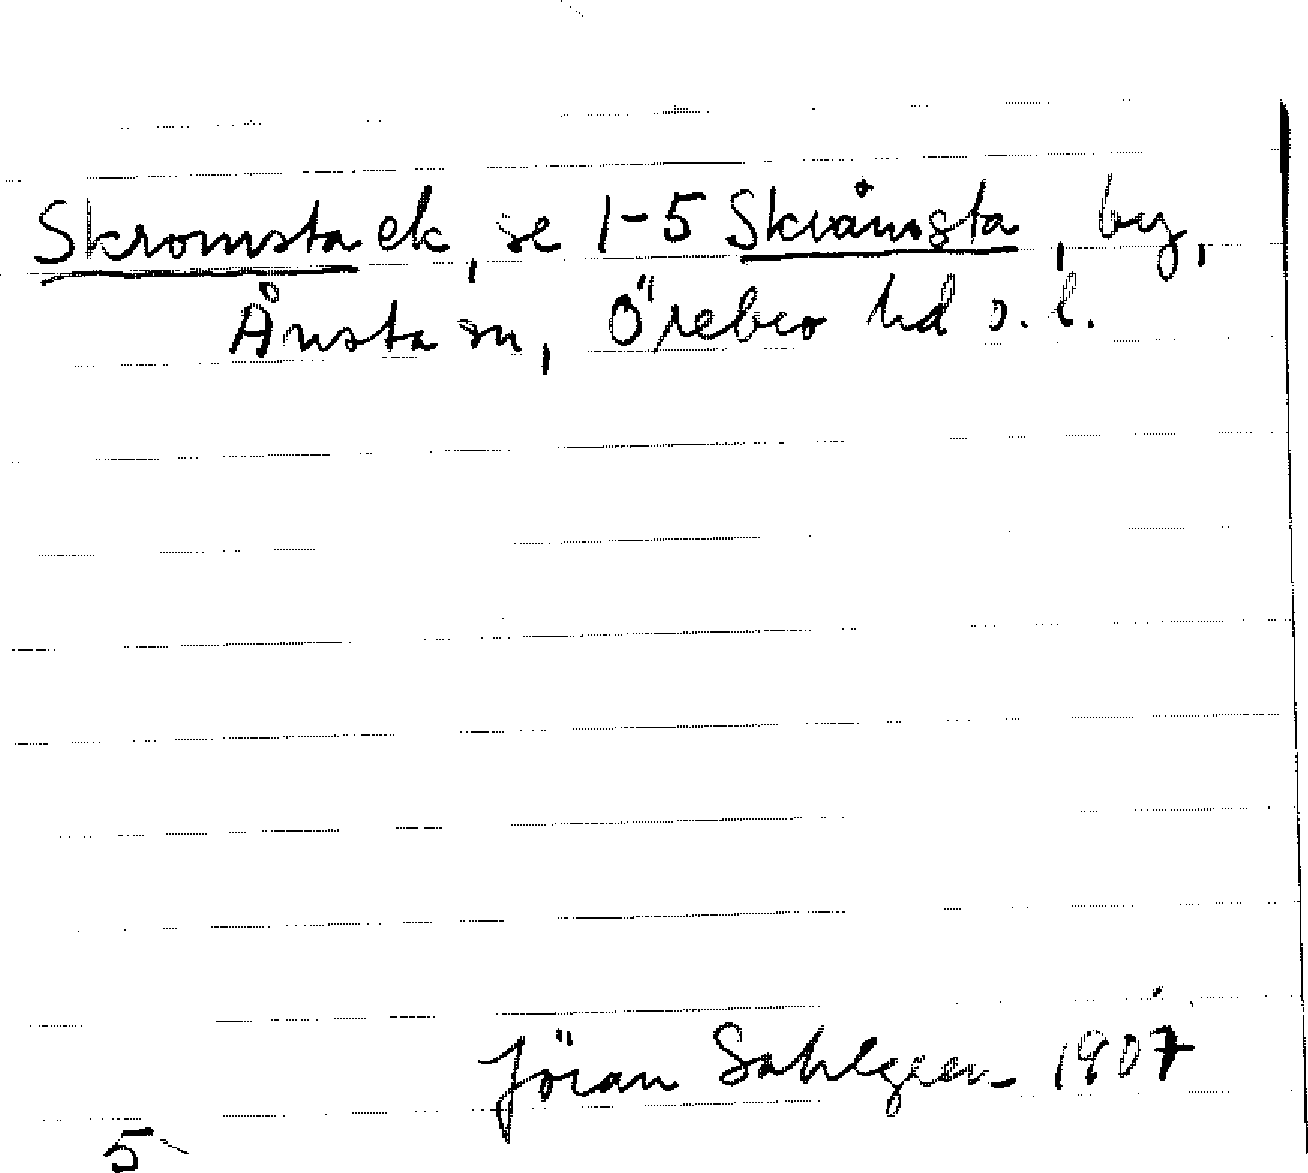 Skromsta ek, se 1-5 Skråmsta, by,
Ånsta sn, Örebro hd o. l.
Jöran Sahlgren 1907
5